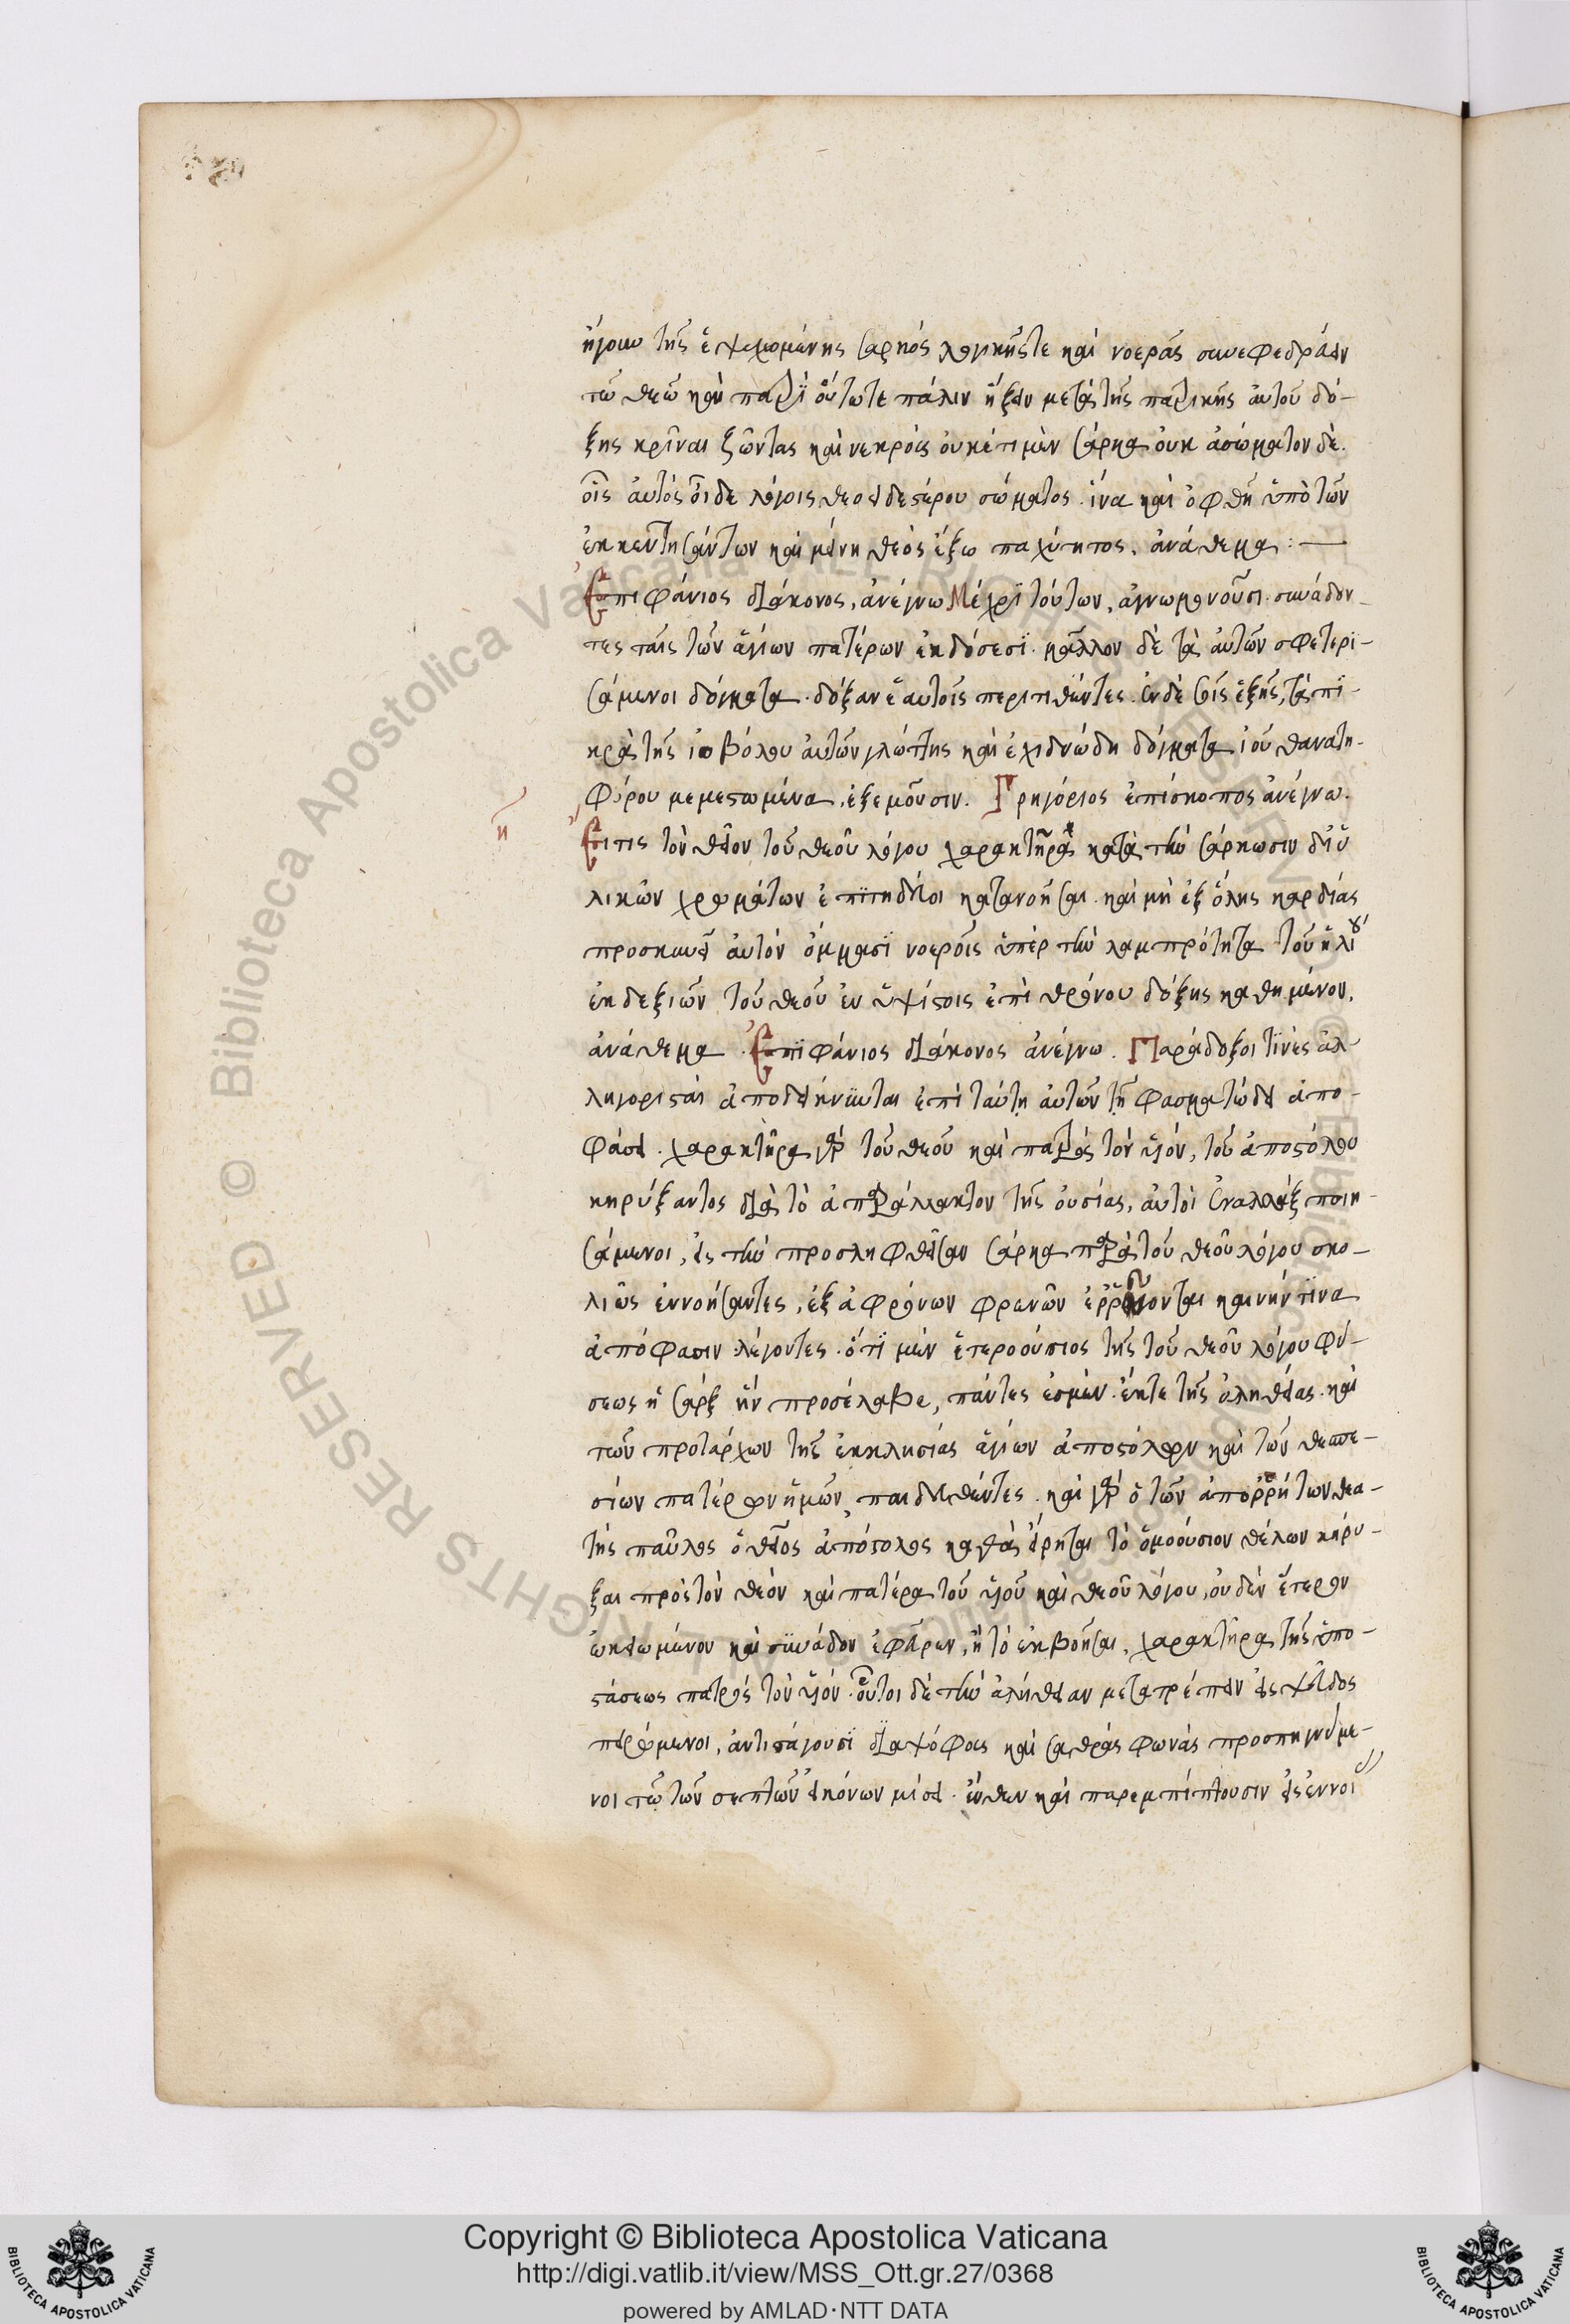 ἤγουν τῆς ἐψυχωμένης σαρκὸς λογικῆς τε καὶ νοερᾶς συνεφεδρεύειν
τῶ θεῶ καὶ πατρὶ οὕτω τε πάλιν ἥξειν μετὰ τῆς πατρικῆς αὐτοῦ δό-
ξης κρῖναι ζῶντας καὶ νεκρούς οὐκέτι μὲν σάρκα οὐκ ἀσώματον δέ.
οἷς αὐτὸς οἶδε λόγοις θεοειδεστέρου σώματος. ἵνα καὶ ὀφθῆ ὑπὸ τῶν
ἐκκεντησάντων καὶ μείνη θεὸς ἔξω παχύτητος, ἀνάθεμα :—
Ἐπιφάνιος διάκονος, ἀνέγνω Μέχρι τούτων, ἀγνωμονοῦσι συνάδον-
τες ταῖς τῶν ἁγίων πατέρων ἐκδόσεσι. μᾶλλον δὲ τὰ αὐτῶν σφετερι-
σάμενοι δόγματα. δόξαν ἑαυτοῖς περιτιθέντες. ἐν δὲ τοῖς ἑξῆς, τὰ πι-
κρὰ τῆς ἰοβόλου αὐτῶν γλώττης καὶ ἐχιδνώδη δόγματα ἰοῦ θανατη-
φόρου μεμεστωμένα, ἐξεμοῦσιν. Γρηγόριος ἐπίσκοπος ἀνέγνω.
η Εἴ τις τὸν θεῖον τοῦ θεοῦ λόγου χαρακτῆρα κατὰ τὴν σάρκωσιν δι' ὑ
λικῶν χρωμάτων ἐπιτηδεύοι κατανοῆσαι. καὶ μὴ ἐξ ὅλης καρδίας
προσκυνεῖ αὐτόν ὄμμασι νοεροῖς ὑπὲρ τὴν λαμπρότητα τοῦ ἡλίου
ἐκ δεξιῶν τοῦ θεοῦ ἐν ὑψίστοις ἐπὶ θρόνου δόξης καθήμενον,
ἀνάθεμα. Ἐπιφάνιος διάκονος ἀνέγνω. Παράδοξοι τινὲς ἀλ-
ληγορισταὶ ἀποδείκνυνται ἐπὶ ταύτη αὐτῶν τῇ φασματώδει ἀπο-
φάσει. χαρακτῆρα γὰρ τοῦ θεοῦ καὶ πατρὸς τὸν υἱόν, τοῦ ἀποστόλου
κηρύξαντος διὰ τὸ ἀπαράλλακτον τῆς οὐσίας, αὐτοὶ ἐναλλὰξ ποιη-
σάμενοι, εἰς τὴν προσληφθεῖσαν σάρκα παρὰ τοῦ θεοῦ λόγου σκο-
λιῶς ἐννοήσαντες, ἐξ ἀφρόνων φρενῶν ἐρεύγονται καινήν τινα
ἀπόφασιν λέγοντες. ὅτι μὲν ἑτεροούσιος τῆς τοῦ θεοῦ λόγου φύ-
σεως ἡ σάρξ ἣν προσέλαβε, πάντες ἐσμὲν ἔκ τε τῆς ἀληθείας. καὶ
τῶν προτάρχων τῆς ἐκκλησίας ἁγίων ἀποστόλων καὶ τῶν θεσπε-
σίων πατέρων ἡμῶν, παιδευθέντες. καὶ γὰρ ὁ τῶν ἀπορρήτων θεα-
τὴς παῦλος ὁ θεῖος ἀπόστολος καθὰ εἴρηται τὸ ὁμοούσιον θέλων κηρύ-
ξαι πρὸς τὸν θεὸν καὶ πατέρα τοῦ υἱοῦ καὶ θεοῦ λόγου, οὐδὲν ἕτερον
ὠκειωμένον καὶ συνάδον ἐφεῦρεν, ἢ τὸ ἐκβοῆσαι, χαρακτῆρα τῆς ὑπο-
στάσεως πατρὸς τὸν υἱόν. οὗτοι δὲ τὴν ἀλήθειαν μετατρέπειν εἰς ψεῦδος
πειρώμενοι, ἀντεισάγουσι διαψόφους καὶ σαθρὰς φωνάς προσπηγνύμε-
νοι τῶ τῶν σεπτῶν εἰκόνων μίσει. ἔνθεν καὶ παρεμπίπτουσιν εἰς ἐννοί
Copyright © Biblioteca Apostolica Vaticana
http://digi.vatlib.it/view/MSS_Ott.gr.27/0368
powered by AMLAD·NTT DATA